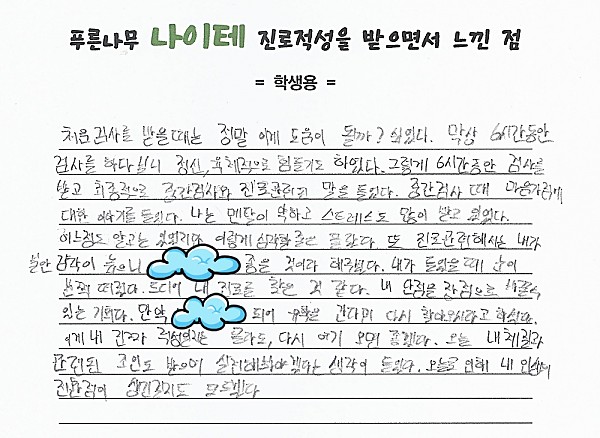 푸른나무 나이테 진로적성을 받으면서 느낀 점
= 학생용 =
처음 검사를 받을때는 정말 이게 도움이 될까? 싶었다. 막상 6시간동안
검사를 하다보니 정신, 육체적으로 힘들기도 하였다. 그렇게 6시간동안 검사를
받고 최종적으로 중간검사와 진로관련된 말을 들었다. 중간검사 때 마음가짐에
대한 이야기를 들었다. 나는 멘탈이 약하고 스트레스도 많이 받고 있었다.
어느정도 알고는 있었지만 이렇게 심각할 줄은 몰랐다. 또 진로관련해서는 내가
불안 감각이 높으니 좋은 것이라 해주셨다. 내가 들었을 때 많이
드디어 내 진로를 찾은 것 같다. 내 단점을 장점으로
있는 기회다. 만약 되어 유학을 간다면 다시 찾아오시라고 하셨다.
이게 내 진짜 적성인지는 몰라도, 다시 여기 오면 좋겠다. 오늘 내 체질과
관련된 조언도 받으며 실천해봐야겠다는 생각이 들었다. 오늘로 인해 내 인생의
전환점이 생긴걸지도 모르겠다